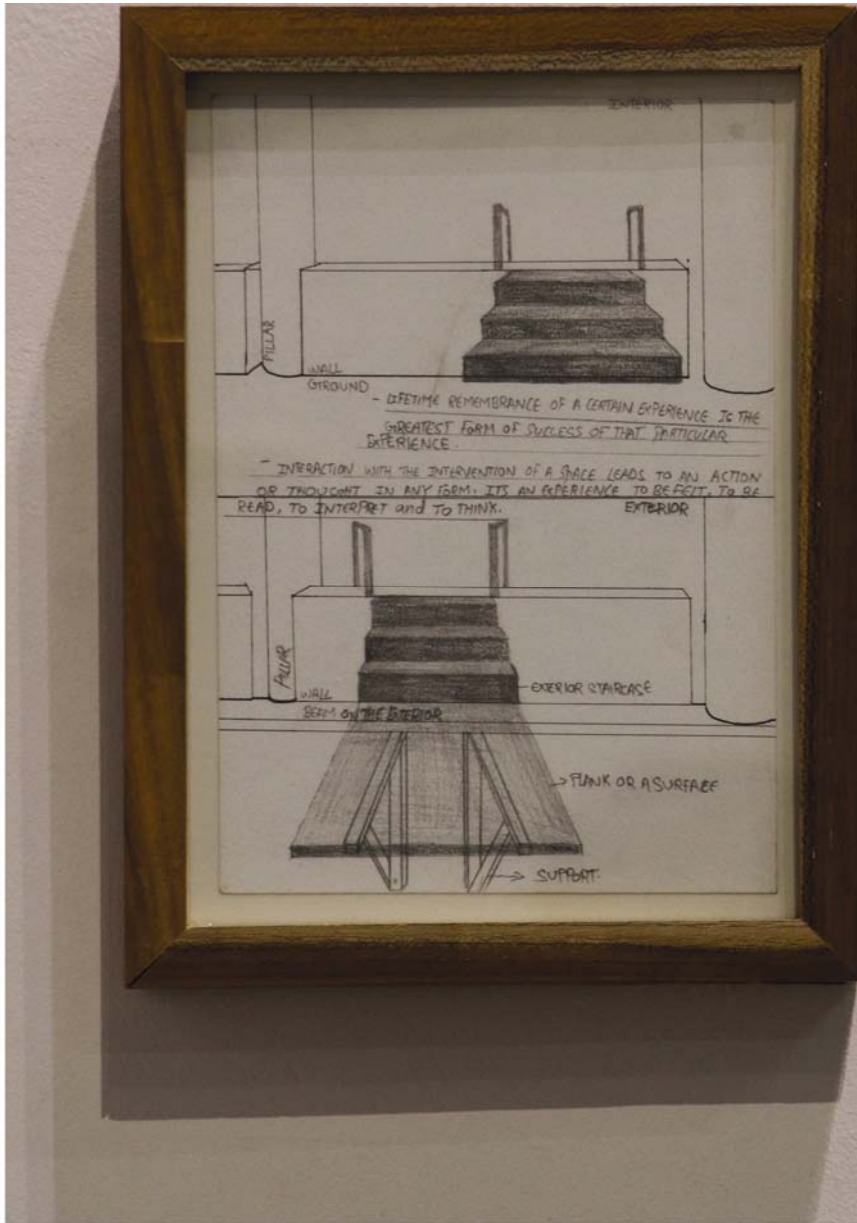 INTERIOR
PILLAR
WALL
GROUND
- LIFETIME REMEMBRANCE OF A CERTAIN EXPERIENCE IS THE
GREATEST FORM OF SUCCESS OF THAT PARTICULAR
EXPERIENCE.
- INTERACTION WITH THE INTERVENTION OF A SPACE LEADS TO AN ACTION
OR THOUGHT IN ANY FORM. ITS AN EXPERIENCE TO BE FELT, TO BE
READ, TO INTERPRET and TO THINK.
EXTERIOR
PILLAR
EXTERIOR STAIRCASE
WALL
BEAM ON THE EXTERIOR
PLANK OR A SURFACE
SUPPORT.